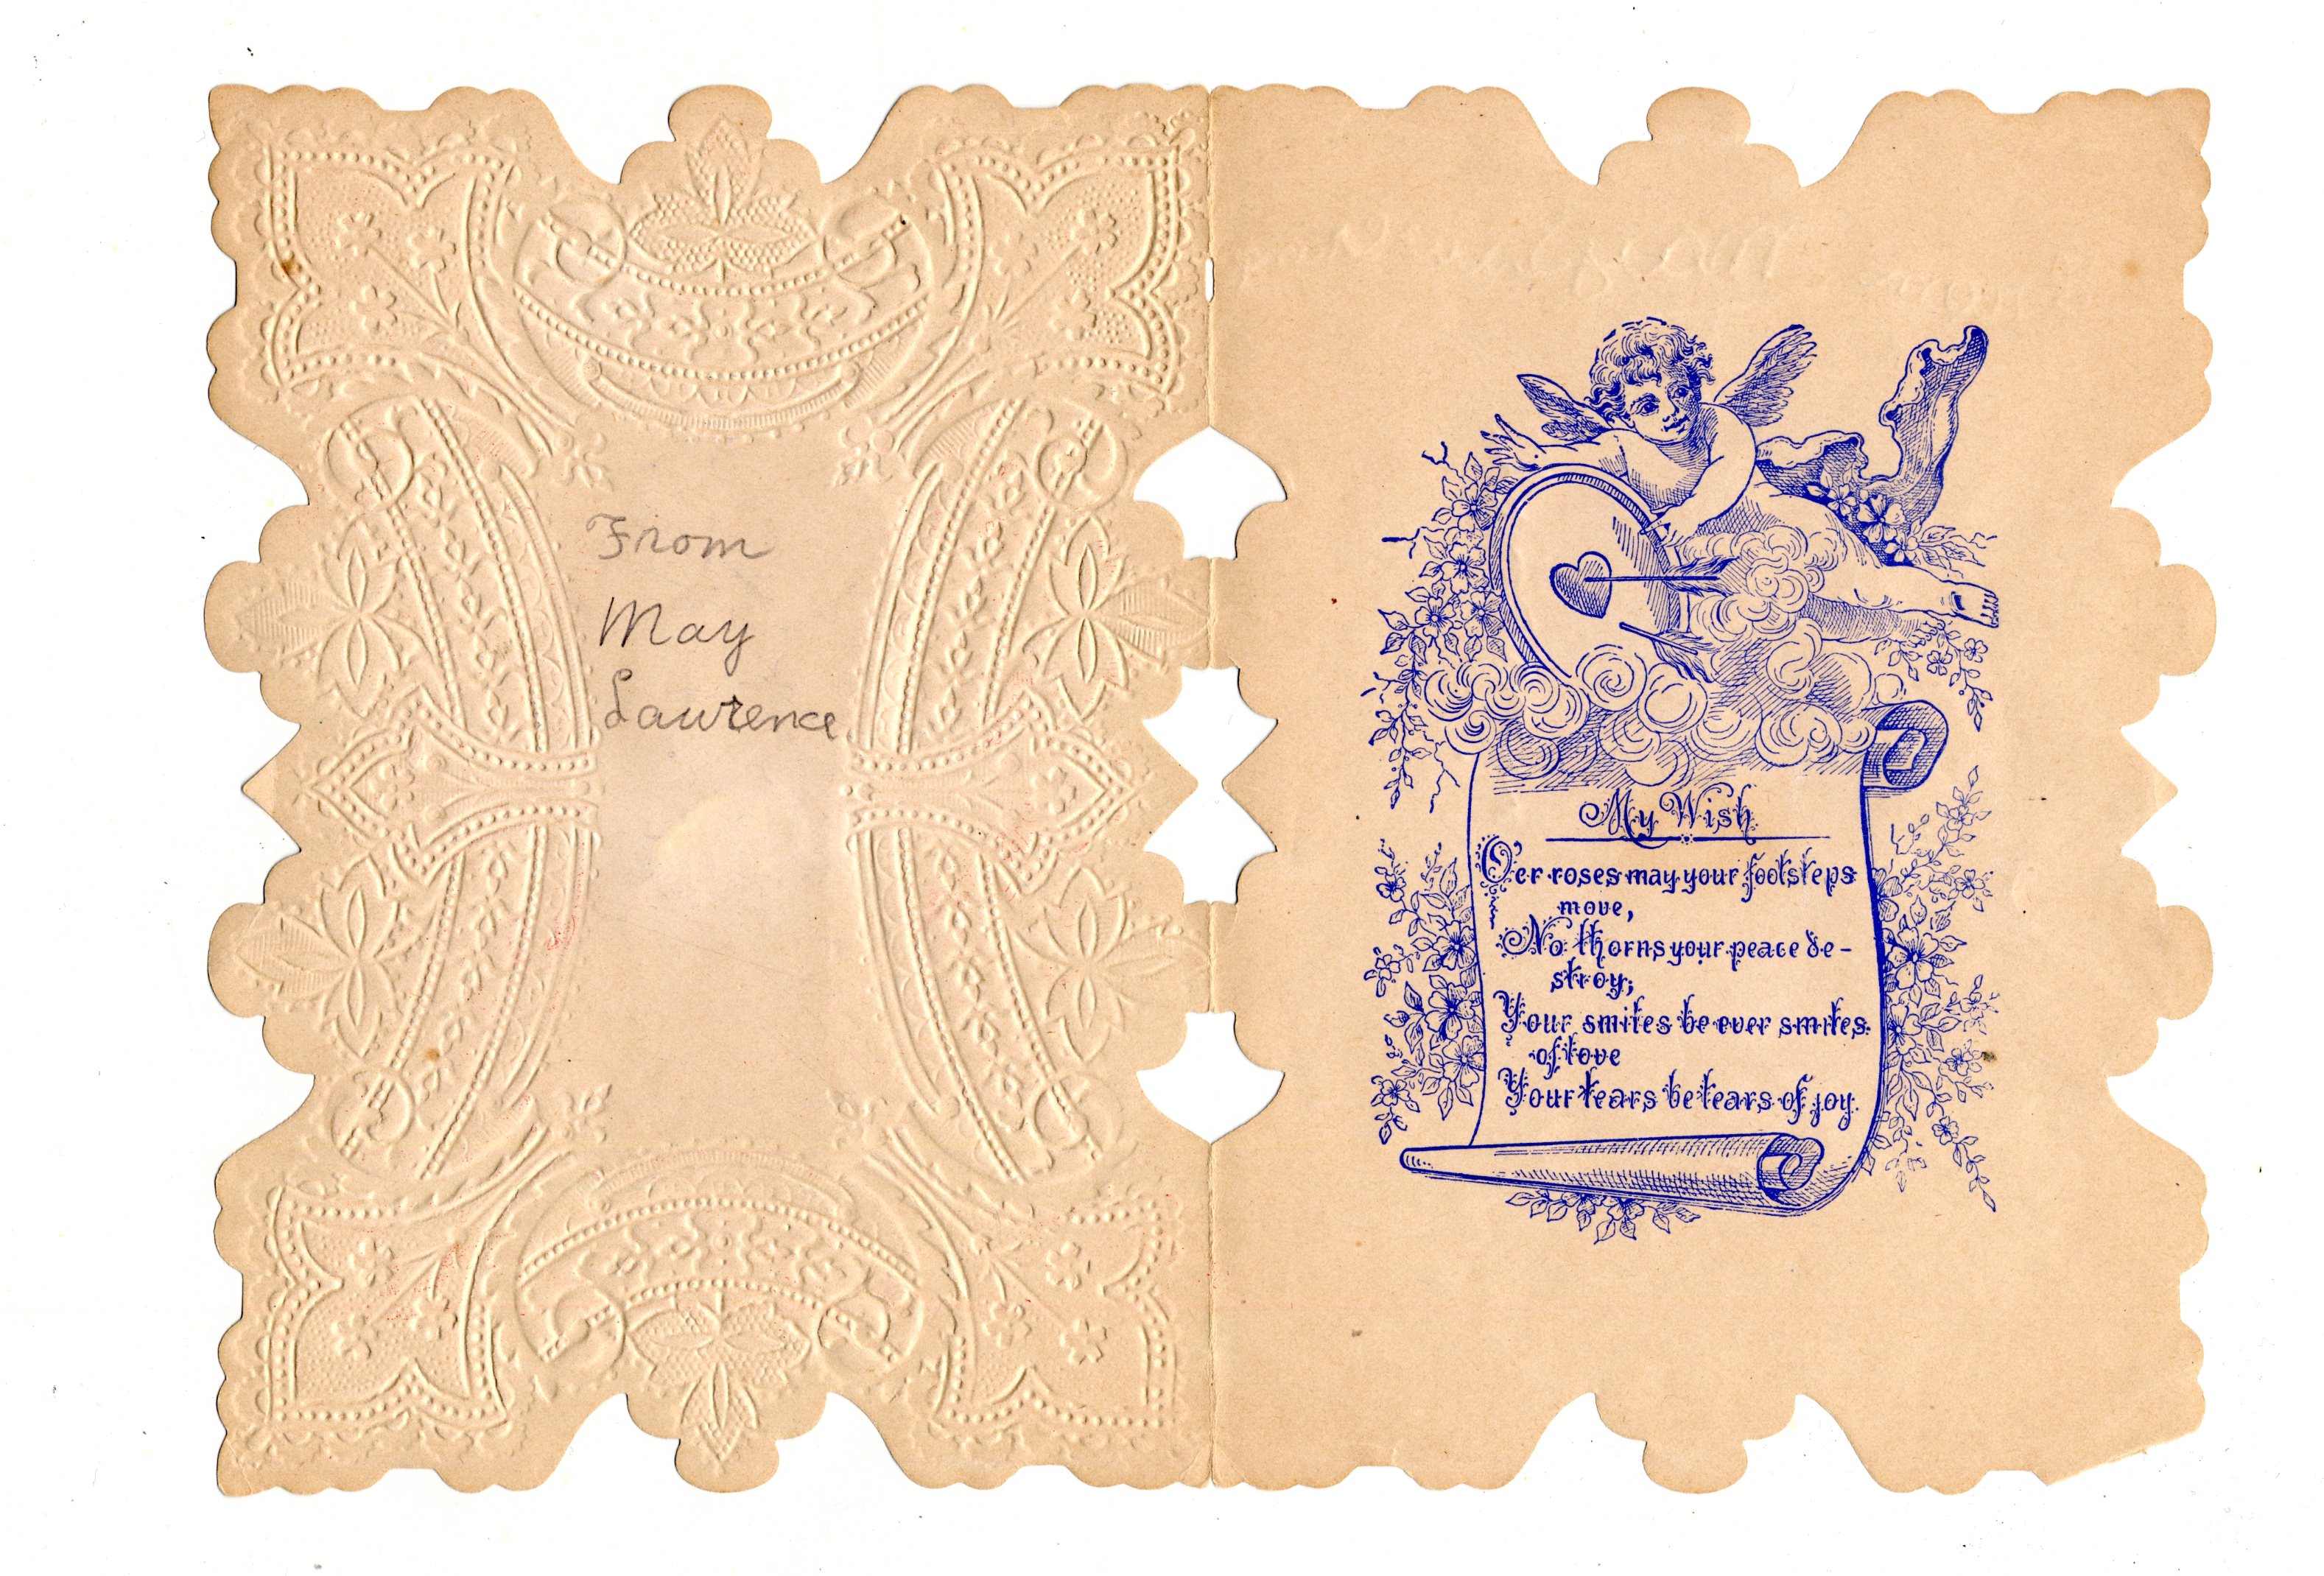 From
May
Lawrence
My Wish
O'er roses may your footsteps
move,
No thorns your peace de-
stroy;
Your smiles be ever smiles
of love
Your tears be tears of joy.